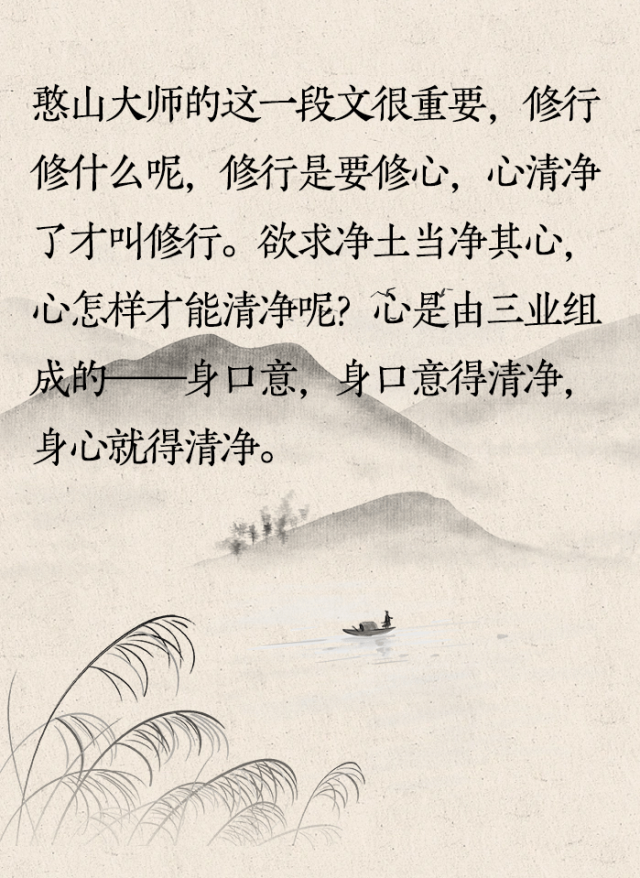 憨山大师的这一段文很重要，修行
修什么呢，修行是要修心，心清净
了才叫修行。欲求净土当净其心，
心怎样才能清净呢？心是由三业组
成的——身口意，身口意得清净，
身心就得清净。